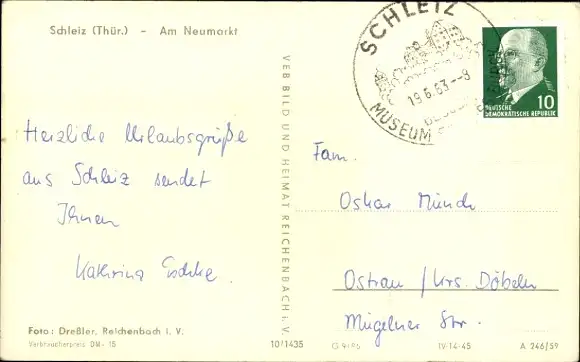 Schleiz (Thür.) - Am Neumarkt
Herzliche Urlaubsgrüße
aus Schleiz sendet
Ihnen
Kathrina
Foto: Dreßler, Reichenbach i. V.
Verbraucherpreis DM -,15
10/1435
VEB BILD UND HEIMAT REICHENBACH i. V.
SCHLEIZ
19.6.63--8
MUSEUM
10
DEUTSCHE
DEMOKRATISCHE REPUBLIK
Fam.
Oskar Münch
Ostrau / Krs. Döbeln
Mügelner Str.
IV-14-45
A 246/59